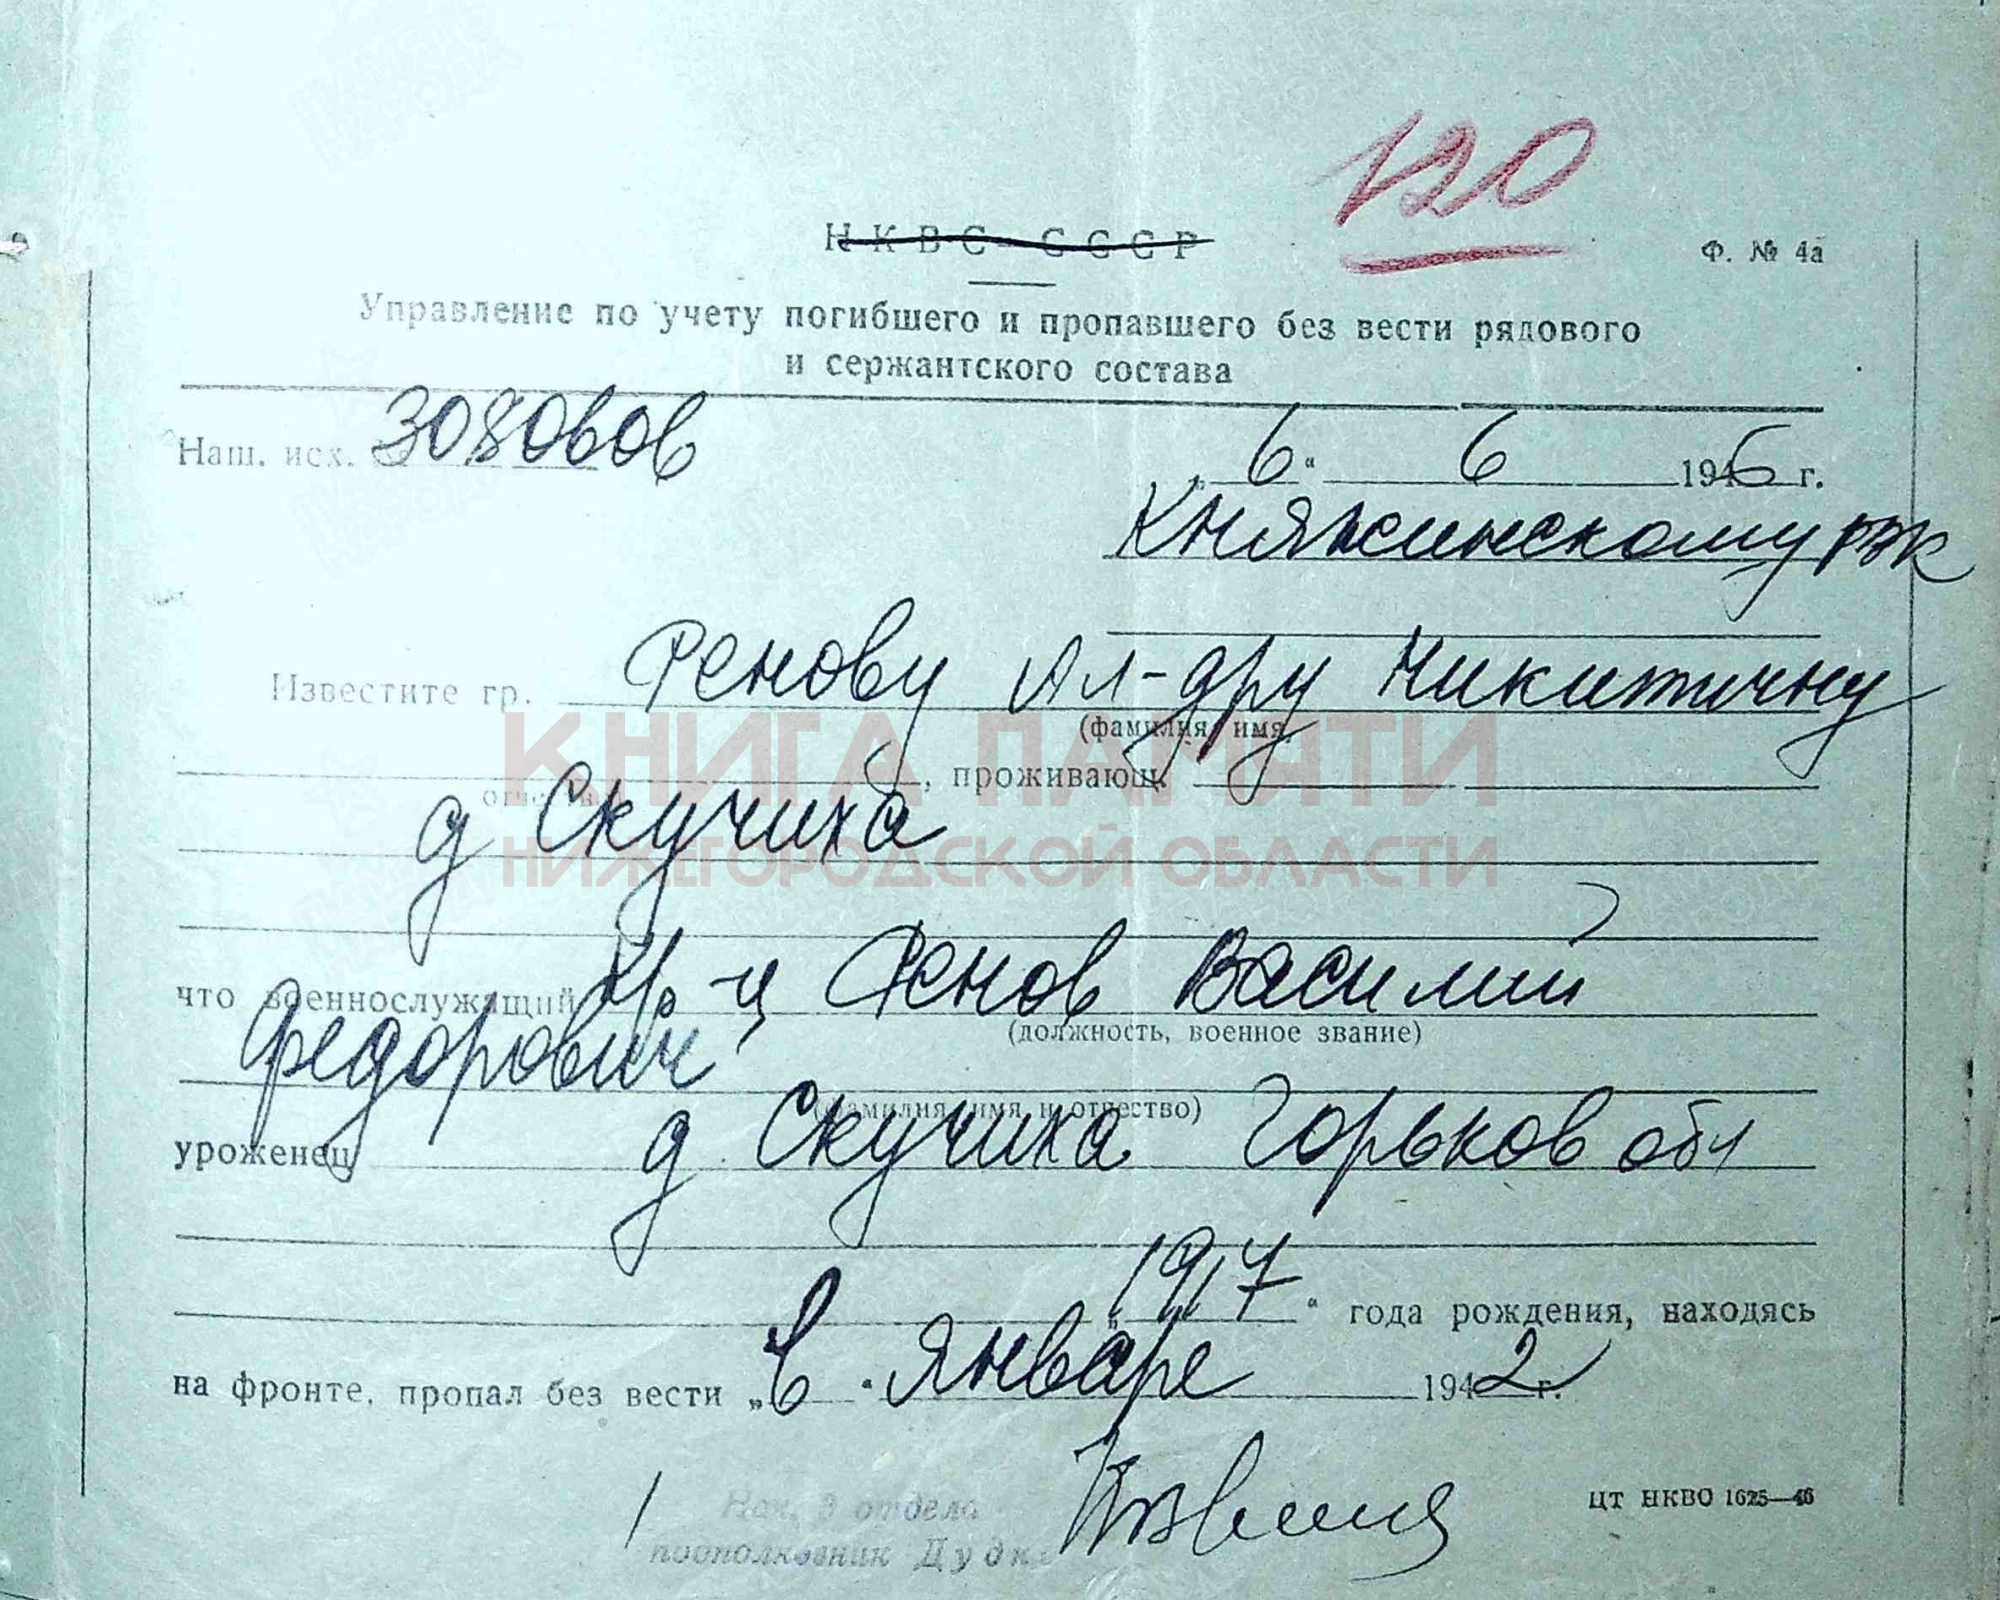 120
НКВС СССР
Ф. № 4а
Управление по учету погибшего и пропавшего без вести рядового
и сержантского состава
Наш. исх. 3080вов
„6“ 6 1946 г.
Княжинскому рвк
Известите гр. Ренову Ал-дру Никитичну
(фамилия, имя,
, проживающ.
д Скучиха
КНИГА ПАМЯТИ
НИЖЕГОРОДСКОЙ ОБЛАСТИ
что военнослужащий кр-ц Ренов Василий
(должность, военное звание)
Федорович
(фамилия, имя и отчество)
уроженец д Скучиха Горьков обл
„1917“ года рождения, находясь
на фронте, пропал без вести „в“ январе 1942 г.
Нач. 3 отдела
подполковник
ЦТ НКВО 1625—46